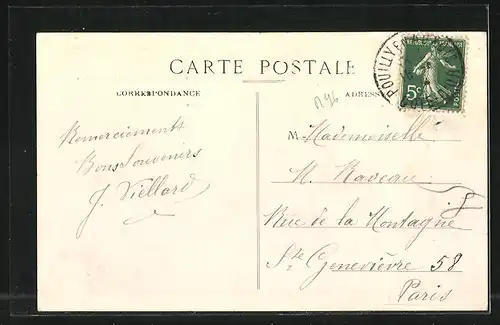 CARTE POSTALE
CORRESPONDANCE
ADRESSE
POUILLY EN
REPUBLIQUE FRANÇAISE
5c
POSTES
Remerciements
Bons Souvenirs
J. Viellard
M. Mademoiselle
M. Naveau
Rue de la Montagne
Ste Genevièvre 58
Paris